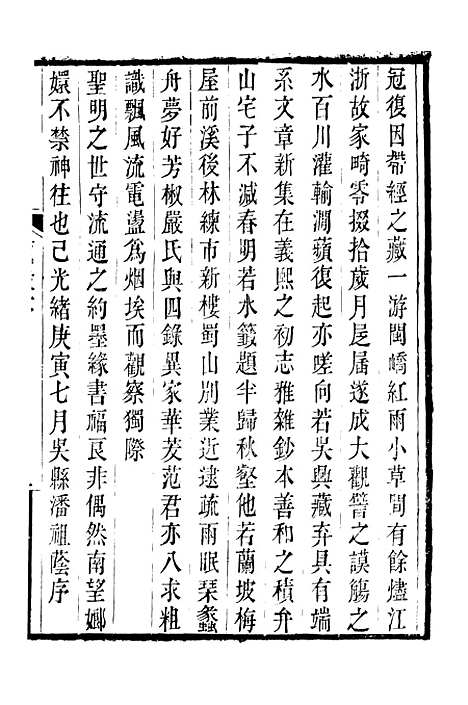 冠復因帶經之藏一游閩嶠紅雨小草間有餘燼江
浙故家畸零掇拾歲月晸屆遂成大觀譬之謨觴之
水百川灌輸澗蘋復起亦嗟向若吳興藏弆具有端
系文章新集在義熙之初志雅雜鈔本善和之積弁
山宅子不減春明若水籤題半歸秋壑他若蘭坡梅
屋前溪後林練市新樓蜀山別業近逮疏雨眠琴蠡
舟夢好芳椒嚴氏與四錄異家華茇范君亦八求粗
識飄風流電盪為烟埃而觀察獨際
聖明之世守流通之約墨緣書福良非偶然南望嫏
嬛不禁神往也已光緒庚寅七月吳縣潘祖蔭序